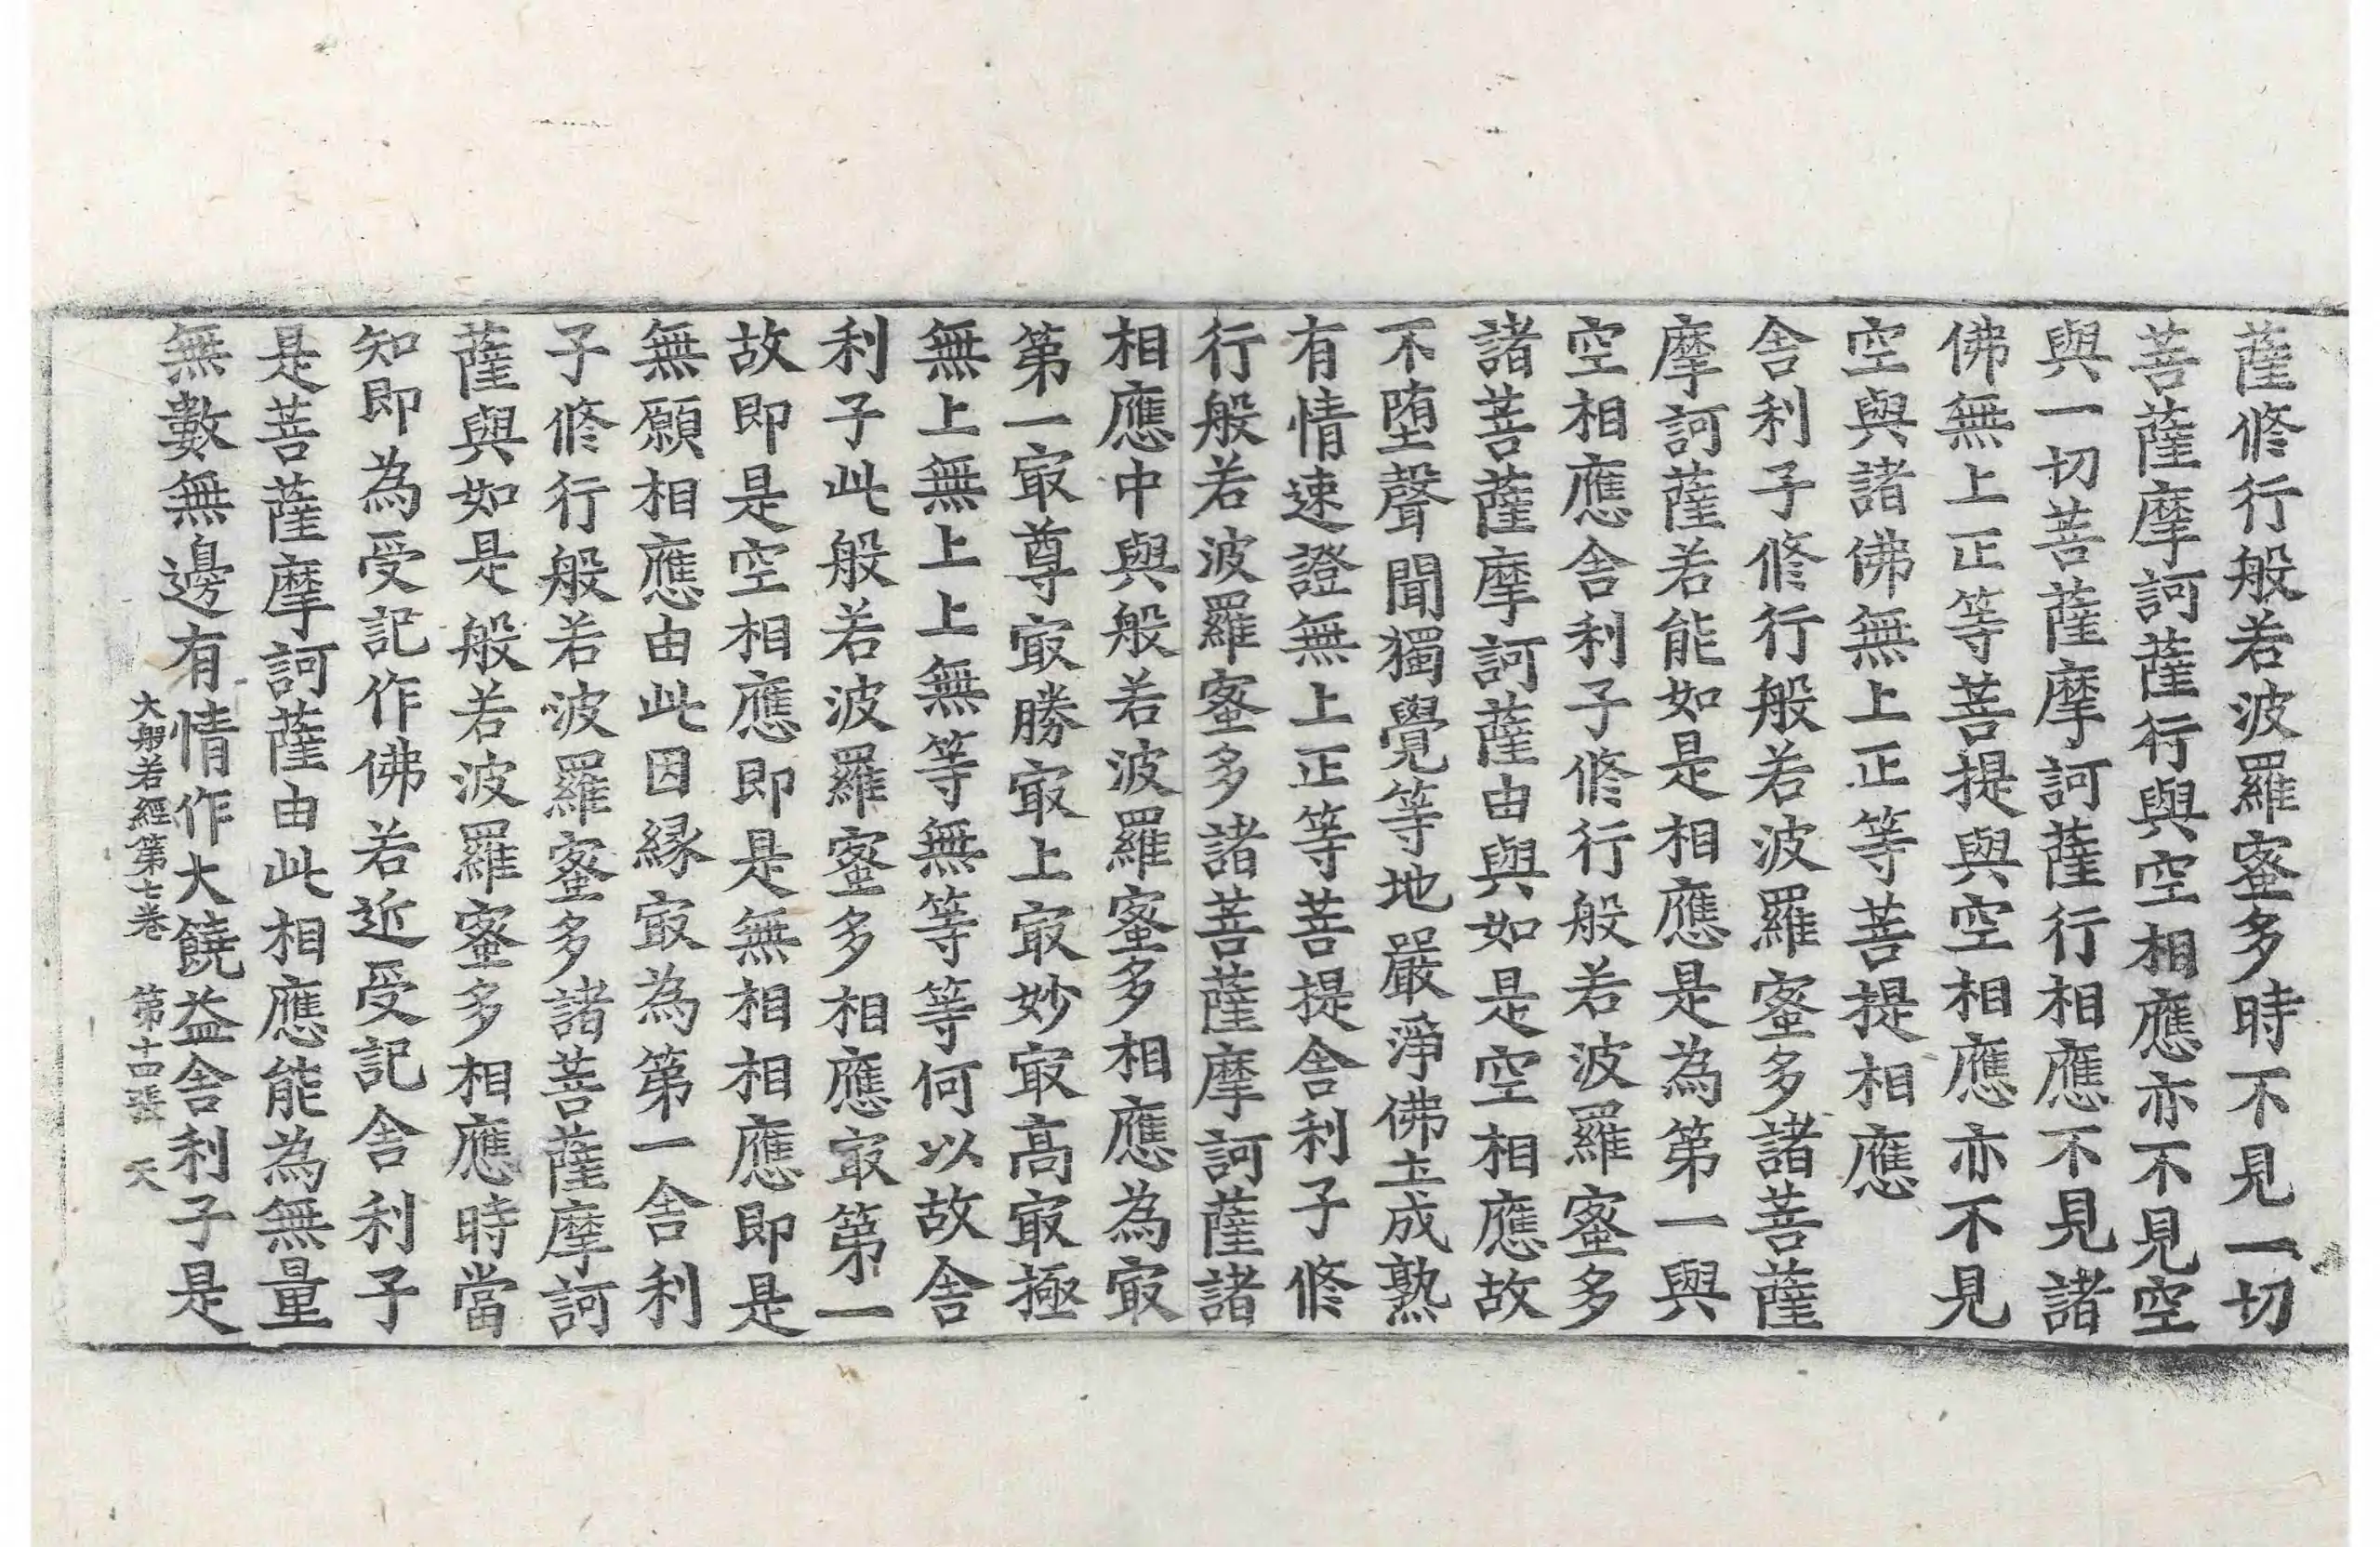 薩修行般若波羅蜜多時不見一切
菩薩摩訶薩行與空相應亦不見空
與一切菩薩摩訶薩行相應不見諸
佛無上正等菩提與空相應亦不見
空與諸佛無上正等菩提相應
舎利子修行般若波羅蜜多諸菩薩
摩訶薩若能如是相應是為第一與
空相應舎利子修行般若波羅蜜多
諸菩薩摩訶薩由與如是空相應故
不堕聲聞獨覺等地嚴淨佛土成熟
有情速證無上正等菩提舎利子修
行般若波羅蜜多諸菩薩摩訶薩諸
相應中與般若波羅蜜多相應為㝡
第一㝡尊㝡勝㝡上㝡妙㝡高㝡極
無上無上上無等無等等何以故舎
利子此般若波羅蜜多相應㝡第一
故即是空相應即是無相相應即是
無願相應由此因縁㝡為第一舎利
子修行般若波羅蜜多諸菩薩摩訶
薩與如是般若波羅蜜多相應時當
知即為受記作佛若近受記舎利子
是菩薩摩訶薩由此相應能為無量
無數無邊有情作大饒益舎利子是
大般若經第七卷 第十四張 天